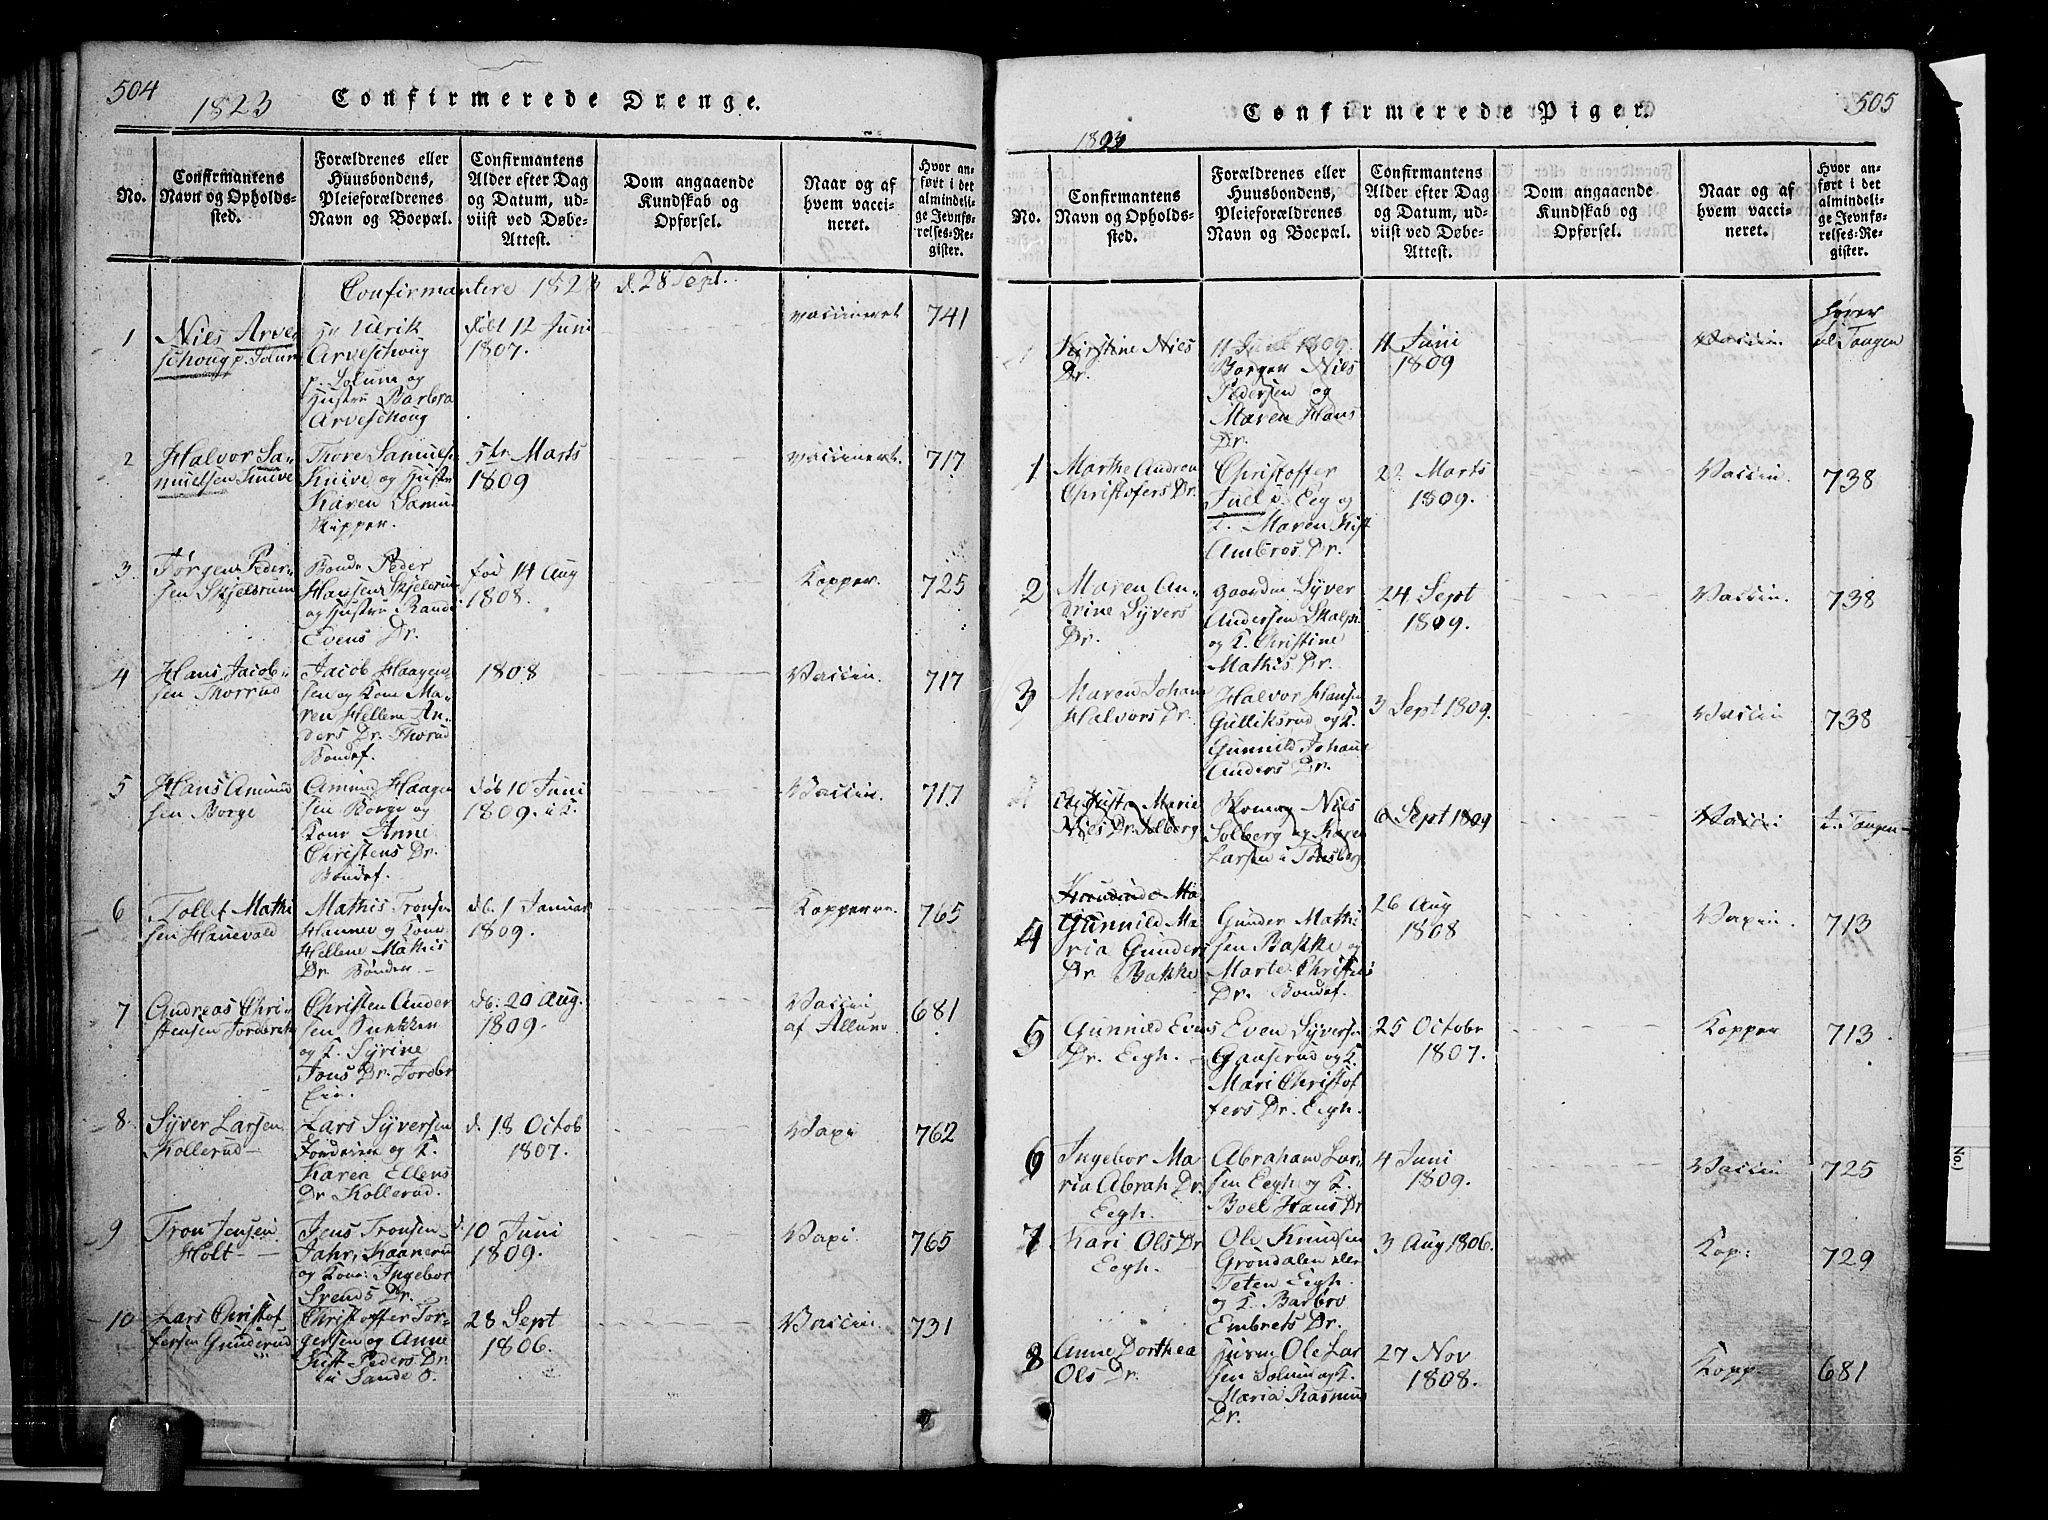 504
1823
Confirmerede Drenge.
No.
Confirmantens
Navn og Opholds-
sted.
Forældrenes eller
Huusbondens,
Pleieforældrenes
Navn og Boepæl.
Confirmantens
Alder efter Dag
og Datum, ud-
viist ved Døbe-
Attest.
Dom angaaende
Kundskab og
Opførsel.
Naar og af
hvem vacci-
neret.
Hvor an-
ført i det
almindeli-
ge Jevnfø-
relses-Re-
gister.
Confirmantere 1823 d. 28 Sept.
1
Niels Arve
schoug p. Solum
Hr Ulrik
Arveschoug
p. Solum og
Hustru Barbra
Arveschoug
Døbt 12 Juni
1807.
vaccineret
741
2
Halvor Sa-
muelsen Knive
Thore Samuels
Knive og Hustr
Karen Samu
Skipper.
5te Marts
1809
vaccineret.
717
3.
Jørgen Peder
sen Skjelsrum
Bonde Peder
Hansen Skjelsrum
og Hustru Randi
Evens Dr.
fød 14 Aug
1808.
Kopper.
725
4
Hans Jacob-
sen Thorrud
Jacob Haagen
sen og Kone Ma-
ren Hellene An-
ders Dr. Thorud
Bondef.
1808
Vaccin.
717
5
Hans Amund
sen Borge
Amund Haagen
sen Borge og
Kone Anne
Christens Dr.
Bondef.
døb 10 Juni
1809. i K.
Vaccin.
717
6
Tollef Mathi
sen Hanevold
Mathis Tronsen
Hannev og Kone
Hellene Mathis
Dr. Bønder
db. 1 Januar
1809.
Kopperne.
765
7
Andreas Chri-
stensen Jorderek
Christen Ander
sen
og K. Syrine
Jons Dr. Jordbr
Eie.
db: 20 Aug.
1809.
Vaccin
af Allum
681
8.
Syver Larsen
Kollerud
Lars Syversen
og K.
Karen Ellens
Dr Kollerud.
d. 18 Octob
1807.
Vaxi
762
9
Tron Jensen
Holt
Jens Tronsen
Jahr, Kaanerud
og Kone: Ingebor
Svends Dr.
d. 10 Juni
1809.
Vaxi.
765
10
Lars Christof
fersen Gunderud
Christoffer Tor-
gersen og Anne
Kist. Peders Dr.
i Sande S.
28 Sept
1806.
Vaccin.
731
505
Confirmerede Piger.
1823
No.
Confirmantens
Navn og Opholds-
sted.
Forældrenes eller
Huusbondens,
Pleieforældrenes
Navn og Boepæl.
Confirmantens
Alder efter Dag
og Datum, ud-
viist ved Døbe-
Attest.
Dom angaaende
Kundskab og
Opførsel.
Naar og af
hvem vacci-
neret.
Hvor an-
ført i det
almindeli-
ge Jevnfø-
relses-Re-
gister.
1
Kirstine Niels
Dr.
11 Juni 1809.
Borgen Niels
Pedersen og
Maren Hans
Dr.
11 Juni
1809
Vaccin.
hører
til Tangen
1
Marthe Andrea
Christofers Dr.
Christoffer
Juel i Eeg og
K. Maren Kist
Ambros Dr.
22 Marts
1809.
Vaccin.
738
2
Maren An-
drine Syvers
Dr.
Gaardm Syver
Andersen Skalp
og K. Christine
Mathis Dr.
24 Sept
1809.
Vaccin.
738
3
Maren Johan
Halvors Dr.
Halvor Hansen
Gulliksrud og K.
Gunnild Johan
Anders Dr.
3 Sept 1809.
Vaccin
738
Augusta Marie
Niels Dr. Solberg
Skomag Niels
Solberg og Karen
Larsen i Tønsberg
6 Sept 1809
Vaccin
t. Tangen
4
Gunnild Ma-
ria Gunders
Dr Bakke
Gunder Mathi
sen Bakke og
Marte Christens
Dr. Bondef.
26 Aug
1808
Vaxin.
713
5
Gunnild Evens
Dr. Eegh.
Even Syversen
Gauserud og K.
Mari Christof
fers Dr. Eegh.
25 Octobr
1807.
Kopper
713
6
Ingebor Ma-
ria Abrah Dr.
Eegh.
Abraham Lar-
sen Eegh og K.
Boel Hans Dr
4 Juni
1809.
Vaccin
725
7
Kari Ols Dr
Eegh.
Ole Knudsen
Grøndalen eller
Teten Eegh.
og K. Barbro
Embrets Dr.
3 Aug 1806.
Kop:
729
8
Anne Dorthea
Ols Dr.
Husm Ole Lar
sen Solum og K.
Maria Rasmus
Dr.
27 Nov
1808.
Kopp
681
No.)